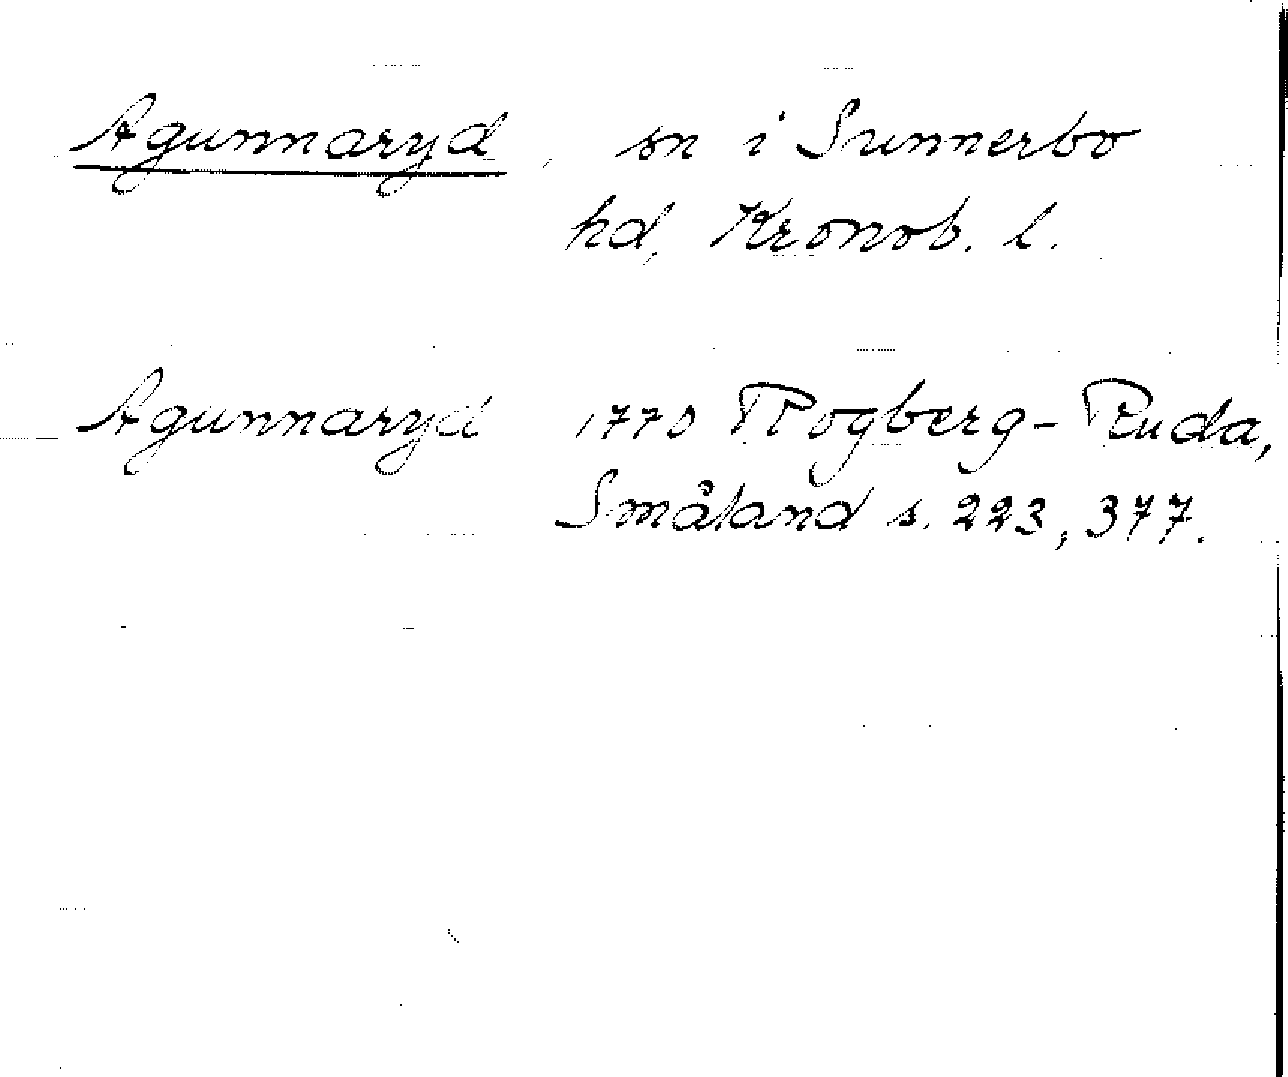 Agunnaryd, sn i Sunnerbo
hd, Kronob. l.
Agunnaryd 1770 Rogberg-Ruda,
Småland s. 223, 377.